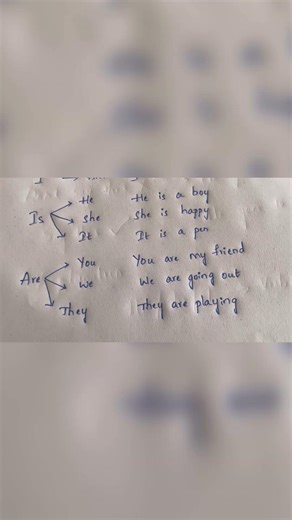 He He is a boy
Is She She is happy
It It is a pen
You You are my friend
Are We We are going out
They They are playing